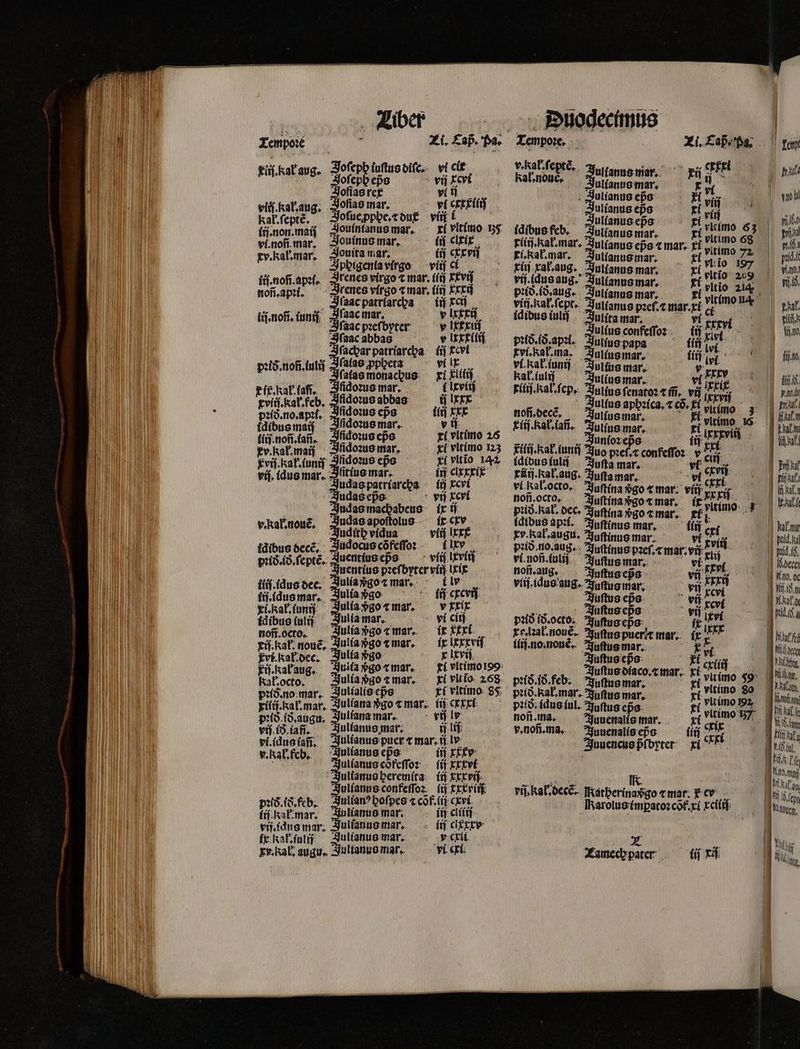 Liber
Tempore Li. Cap. Pa.
xiij.kal'aug. Joseph iustus dise. vi cix
Joseph ep̃s vij xcvi
Josias rex vi ij
viij.kal.aug. Josias mar. vi cxxxiiij
kal.septẽ. Josue,pphe.⁊ dux viij i
iij.non.maij Jouinianus mar. xi vltimo 135
vi.noñ.mar. Jouinus mar. iij clxix
xv.kal.mar. Jouita mar. iij cxxvij
Jphigenia virgo viij ci
iij.noñ.apri. Jrenes virgo ⁊ mar. iiij xxvij
noñ.apri. Jrenes virgo ⁊ mar. iiij xxxij
Jsaac patriarcha iij xcij
iij.noñ. iunij Jsaac mar. v lxxxij
Jsaac presbyter v lxxxiij
Jsaac abbas v lxxxiiij
Jsachar patriarcha iij xcvi
prid.noñ.iulij Jsaias ppheta vi ix
Jsaias monachus xi xliiij
xix.kal.iañ. Jsidorus mar. i lxviij
xviij.kal.feb. Jsidorus abbas ij lxxx
prid.no.apri. Jsidorus ep̃s iiij xxx
idibus maij Jsidorus mar. v ij
iiij.noñ.iañ. Jsidorus ep̃s xi vltimo 26
xv.kal.maij Jsidorus mar. xi vltimo 123
xvij.kal.iunij Jsidorus ep̃s xi vltio 142
vij. idus mar. Jsitius mar. iij clxxxix
Judas patriarcha iij xcvi
Judas ep̃s vij xcvi
Judas machabeus ix ij
v.kal.nouẽ. Judas apostolus ix cxv
Judith vidua viij lxxx
idibus decẽ. Judocus cõfessor i lxv
prid.id.septẽ. Juentius ep̃s viij lxviij
Juentius presbyter viij lxix
iiij.idus dec. Julia ỹgo ⁊ mar. i lv
iij.idus mar. Julia ỹgo iij cxcvij
xi.kal.iunij Julia ỹgo ⁊ mar. v xxix
idibus iulij Julia mar. vi ciij
noñ.octo. Julia ỹgo ⁊ mar. ix xxxi
xij.kal. nouẽ. Julia ỹgo ⁊ mar. ix lxxxvij
xvi.kal.dec. Julia ỹgo x lxvij
xij.kal'aug. Julia ỹgo ⁊ mar. xi vltimo 199
kal.octo. Julia ỹgo ⁊ mar. xi vltio 268
prid.no.mar. Julialis ep̃s xi vltimo 85
xiiij.kal.mar. Juliana ỹgo ⁊ mar. iij cxxxi
prid.id.augu. Juliana mar. vij lv
vij.id.iañ. Julianus mar. ij lij
vi.idus iañ. Julianus puer ⁊ mar. ij lv
v.kal.feb. Julianus ep̃s iij xxxv
Julianus cõfessor iij xxxvi
Julianus heremita iij xxxvij
Julianus confessor iij xxxviij
prid.id.feb. Julian⁹ hospes ⁊ cõf. iij cxvi
iij.kal.mar. Julianus mar. iij cliiij
vij.idus mar. Julianus mar. iij clxxxv
ix.kal.iulij Julianus mar. v cxli
xv.kal. augu. Julianus mar. vi cxi
Duodecimus
Tempore. Li. Cap. Pa.
v.kal.septẽ. Julianus mar. xij
kal.nouẽ. Julianus mar. x vi
Julianus ep̃s xi viij
Julianus ep̃s xi viij
idibus feb. Julianus mar. xi vltimo 63
xiiij.kal.mar. Julianus ep̃s ⁊ mar. xi vltimo 68
xi.kal.mar. Julianus mar. xi vltimo 72
xiij kal.aug. Julianus mar. xi vltio 197
vij.idus aug. Julianus mar. xi vltio 209
prid.id.aug. Julianus mar. xi vltio 214
viij.kal.sept. Julianus pres.⁊ mar. xi vltimo 114
idibus iulij Julita mar. vi ci
Julius confessor iij xxxvi
prid.id.apri. Julius papa iiij xlvi
xvi.kal.ma. Julius mar. iiij lvi
vi.kal.iunij Julius mar. v lvi
kal.iulij Julius mar. vi xxxv
xiiij.kal.sep. Julius senator ⁊ m̃. vij lxxix
Julius aphrica. ⁊ cõ. xi lxxvij
noñ.decẽ. Julius mar. xi vltimo 3
xiij.kal.iañ. Julius mar. xi vltimo 16
Junior ep̃s iiij lxxxviij
xiiij.kal.iunij Juo pres.⁊ confessor v xxi
idibus iulij Justa mar. vi ciij
xiiij.kal.aug. Justa mar. vi cxvij
vi kal.octo. Justina ỹgo ⁊ mar. viij cxxi
noñ.octo. Justina ỹgo ⁊ mar. ix xxxij
prid.kal. dec. Justina ỹgo ⁊ mar. xi vltimo
idibus apri. Justinus mar. iiij
xv.kal.augu. Justinus mar. vi cxi
prid.no.aug. Justinus pres.⁊ mar. vij xviij
vi.noñ.iulij Justus mar. vi xlij
noñ.aug. Justus ep̃s vij xxvi
viij.idus aug. Justus mar. vij xxxij
Justus ep̃s vij xcvi
Justus ep̃s vij xcvi
prid id.octo. Justus ep̃s ix lxvi
xv.kal.nouẽ. Justus puer ⁊ mar. ix lxxx
iiij.no.nouẽ. Justus mar. x vi
Justus ep̃s xi cxiiij
Justus diaco.⁊ mar. xi vltimo 59
prid.id.feb. Justus mar. xi vltimo 80
prid.kal.mar. Justus mar. xi vltimo 192
prid. idus iul. Justus ep̃s xi vltimo 137
noñ.ma. Juuenalis mar. xi
v.noñ.ma. Juuenalis ep̃s iiij cxix
Juuencus p̃sbyter xi cxxi
K
vij.kal.decẽ. Katherina ỹgo ⁊ mar. x cv
Karolus imperator cõf. xi xciiij
L
Lamech pater iij xij